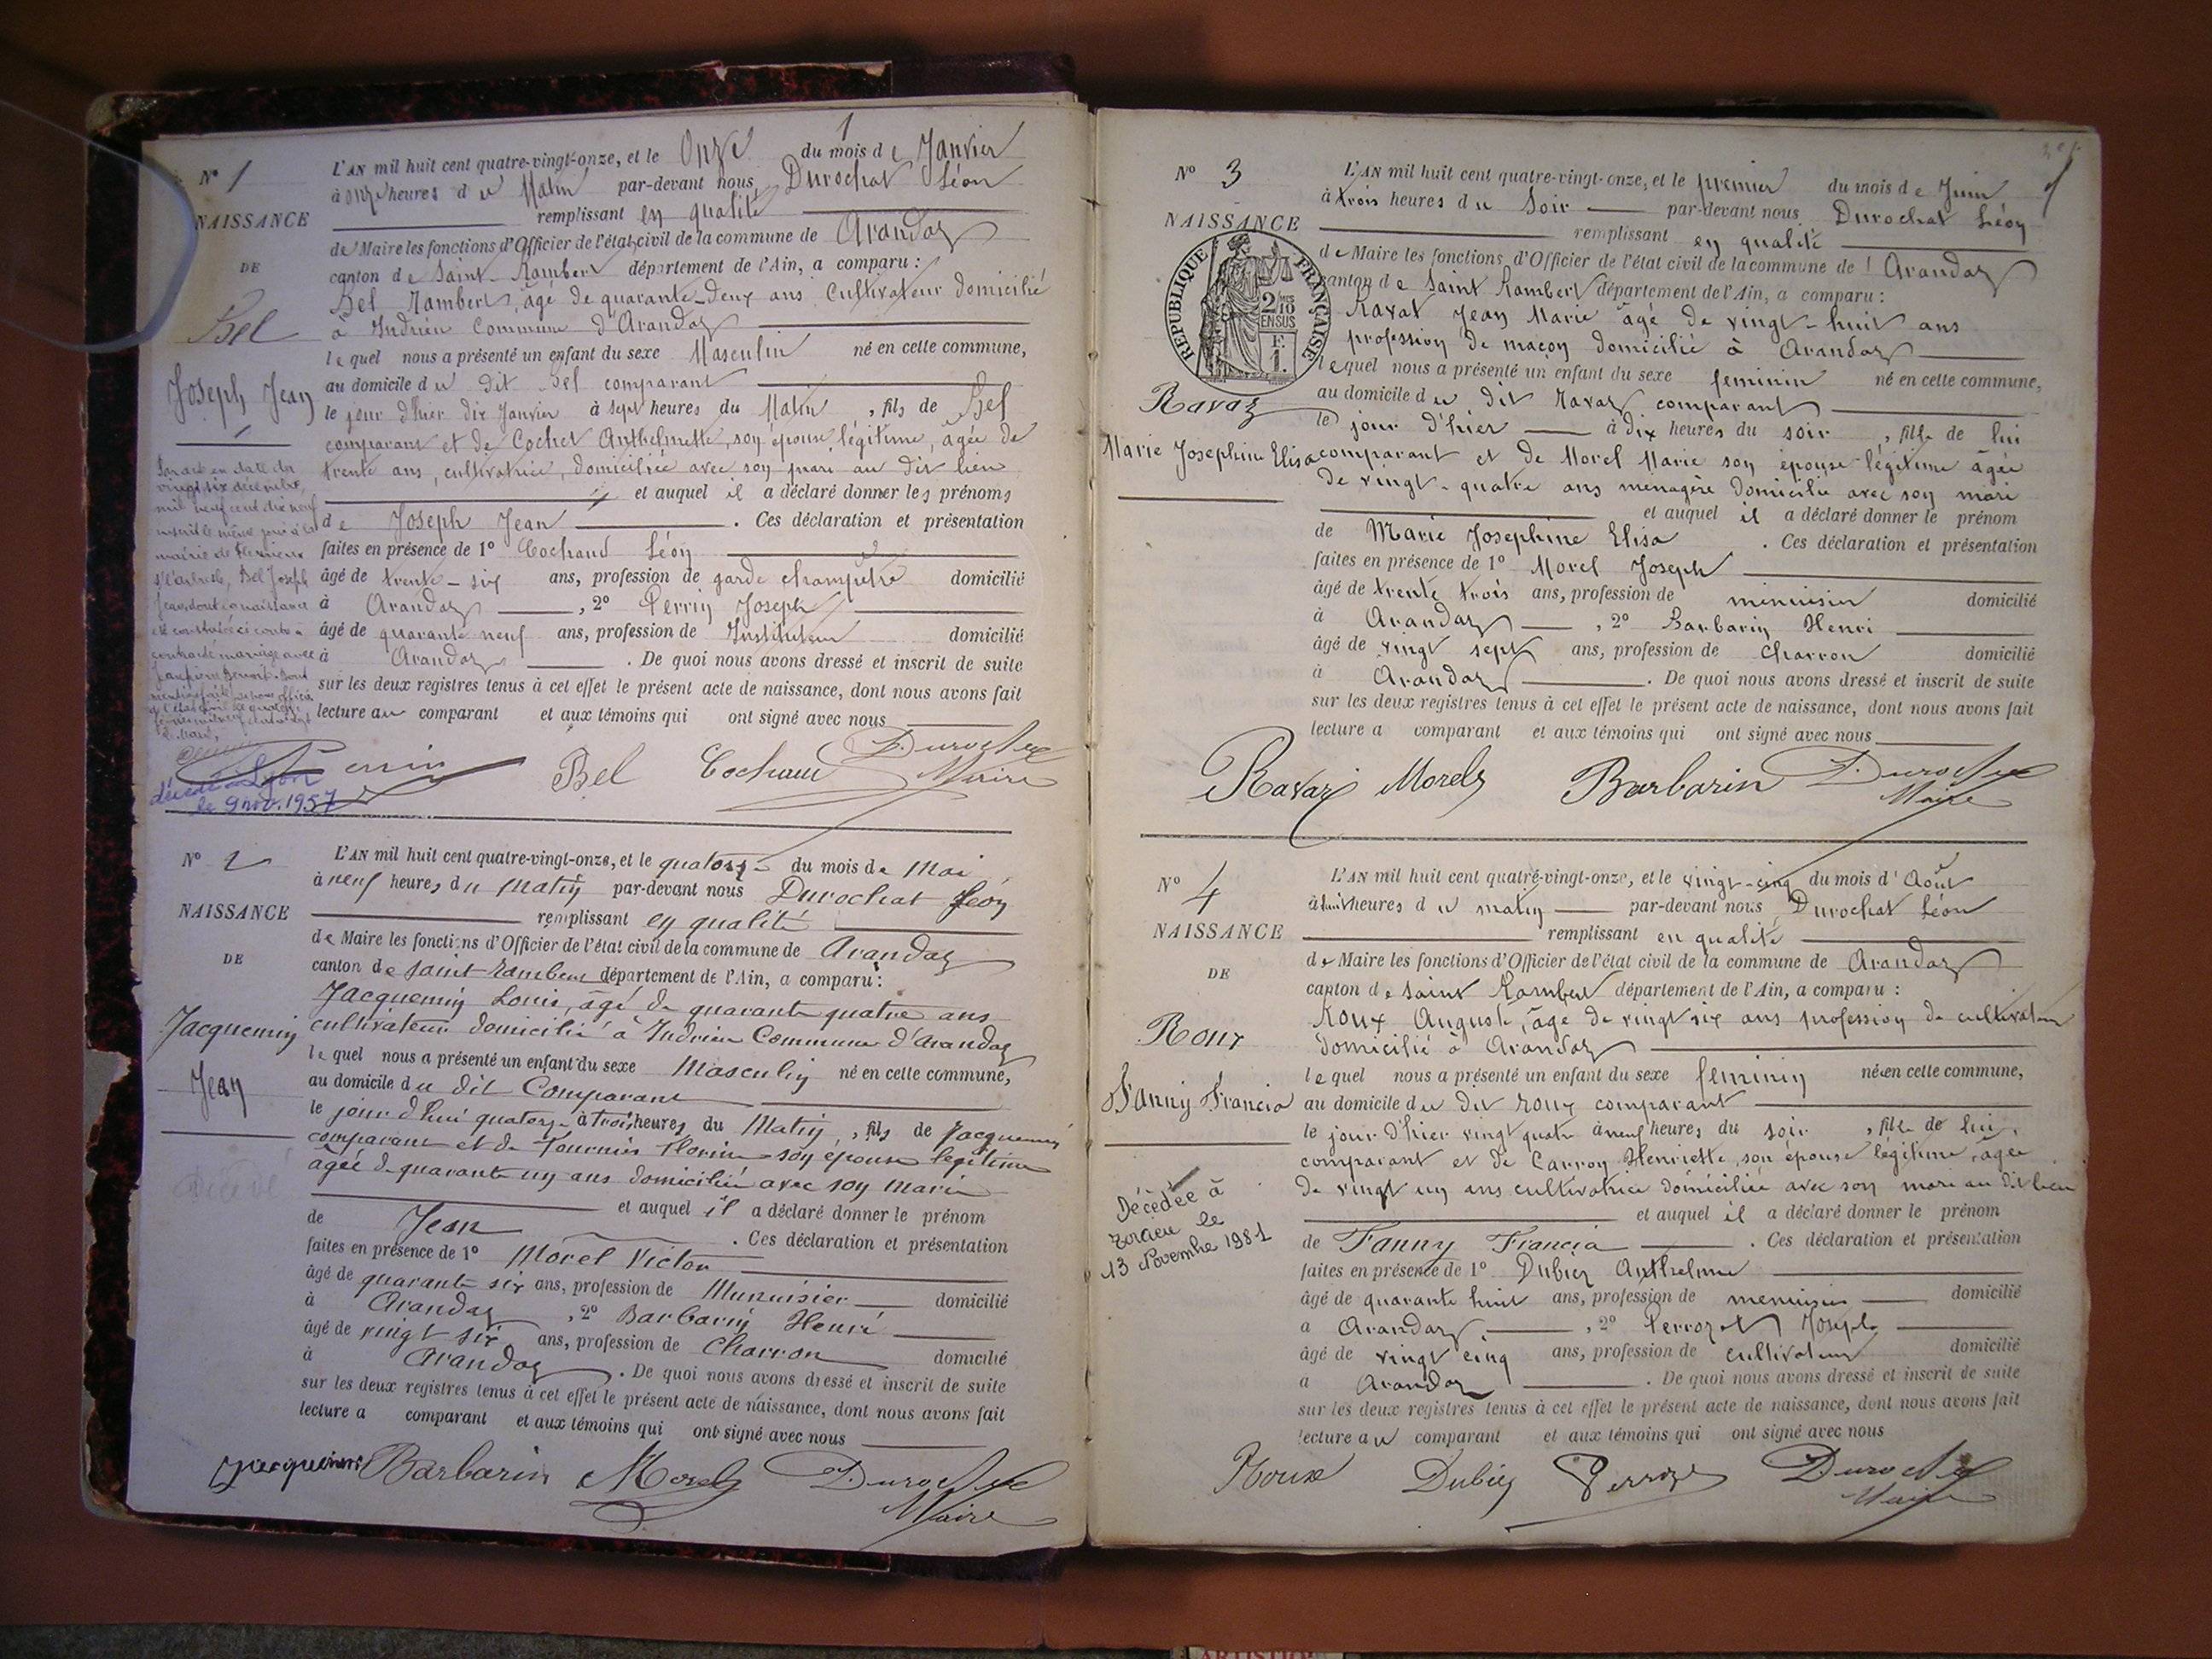 1
N° 1
NAISSANCE
DE
Bel
Joseph Jean
L'AN mil huit cent quatre-vingt-onze, et le Onze du mois de Janvier
à onze heures du Matin par-devant nous Durochat Léon
remplissant en qualité
de Maire les fonctions d'Officier de l'état civil de la commune de Arandaz
canton de Saint-Rambert département de l'Ain, a comparu :
Bel Rambert, âgé de quarante-deux ans Cultivateur domicilié
à Indrieu Commune d'Arandaz
lequel nous a présenté un enfant du sexe Masculin né en cette commune,
au domicile du dit Bel comparant
le jour d'hier dix Janvier à sept heures du Matin, fils de Bel
comparant et de Cochet Anthelmette, son épouse légitime, âgée de
trente ans, cultivatrice, domiciliée avec son mari au dit lieu
et auquel il a déclaré donner les prénoms
de Joseph Jean . Ces déclaration et présentation
faites en présence de 1° Cochaud Léon
âgé de trente-six ans, profession de garde champêtre domicilié
à Arandaz , 2° Perrin Joseph
âgé de quarante neuf ans, profession de Instituteur domicilié
à Arandaz . De quoi nous avons dressé et inscrit de suite
sur les deux registres tenus à cet effet le présent acte de naissance, dont nous avons fait
lecture au comparant et aux témoins qui ont signé avec nous
Par acte en date du
vingt six décembre,
mil neuf cent dix neuf
inscrit le même jour à la
mairie de
Bel Joseph
Jean dont la naissance
est constatée ci contre a
contracté mariage avec
Perrin Bel Cochaud Durochat
Maire
décédé à Lyon
le 9 nov. 1957
N° 2
NAISSANCE
DE
Jacquemin
Jean
Décédé
L'AN mil huit cent quatre-vingt-onze, et le quatorze du mois de Mai
à neuf heures du matin par-devant nous Durochat Léon
remplissant en qualité
de Maire les fonctions d'Officier de l'état civil de la commune de Arandaz
canton de saint-rambert département de l'Ain, a comparu :
Jacquemin Louis, âgé de quarante quatre ans
cultivateur domicilié à Indrieu Commune d'Arandaz
lequel nous a présenté un enfant du sexe Masculin né en cette commune,
au domicile du dit Comparant
le jour d'hui quatorze à trois heures du Matin, fils de Jacquemin
comparant et de Fournier Florine son épouse légitime
âgée de quarante un ans domiciliée avec son marie
et auquel il a déclaré donner le prénom
de Jean . Ces déclaration et présentation
faites en présence de 1° Morel Victor
âgé de quarante six ans, profession de Munuisier domicilié
à Arandaz , 2° Barbarin Henri
âgé de vingt six ans, profession de Charron domicilié
à Arandaz . De quoi nous avons dressé et inscrit de suite
sur les deux registres tenus à cet effet le présent acte de naissance, dont nous avons fait
lecture a comparant et aux témoins qui ont signé avec nous
Jacquemin Barbarin Morel Durochat
Maire
N° 3
NAISSANCE
RÉPUBLIQUE FRANÇAISE
2/10
EN SUS
F.
1.
Ravaz
Marie Josephine Elisa
L'AN mil huit cent quatre-vingt-onze, et le premier du mois de Juin
à trois heures du Soir par-devant nous Durochat Léon
remplissant en qualité
de Maire les fonctions d'Officier de l'état civil de la commune de Arandaz
canton de Saint Rambert département de l'Ain, a comparu :
Ravat Jean Marie âgé de vingt-huit ans
profession de maçon domicilié à Arandaz
lequel nous a présenté un enfant du sexe feminin né en cette commune,
au domicile du dit Ravaz comparant
le jour d'hier à dix heures du soir, fille de lui
comparant et de Morel Marie son épouse légitime âgée
de vingt-quatre ans menagère domicilie avec son mari
et auquel il a déclaré donner le prénom
de Marie Josephine Elisa . Ces déclaration et présentation
faites en présence de 1° Morel Joseph
âgé de trente trois ans, profession de minuisier domicilié
à Arandaz , 2° Barbarin Henri
âgé de vingt sept ans, profession de Charron domicilié
à Arandaz . De quoi nous avons dressé et inscrit de suite
sur les deux registres tenus à cet effet le présent acte de naissance, dont nous avons fait
lecture a comparant et aux témoins qui ont signé avec nous
Ravaz Morel Barbarin Durochat
Maire
N° 4
NAISSANCE
DE
Roux
Fanny Francia
Décédée à
Torcieu le
13 Novembre 1981
L'AN mil huit cent quatre-vingt-onze, et le vingt-cinq du mois d'Août
à huit heures du matin par-devant nous Durochat Léon
remplissant en qualité
de Maire les fonctions d'Officier de l'état civil de la commune de Arandaz
canton de Saint Rambert département de l'Ain, a comparu :
Roux Auguste, âgé de vingt six ans profession de cultivateur
domicilié à Arandaz
lequel nous a présenté un enfant du sexe feminin né en cette commune,
au domicile du dit roux comparant
le jour d'hier vingt quatre à neuf heures du soir, fille de lui,
comparant et de Carron Henriette, son épouse légitime, âgée
de vingt un ans cultivatrice domiciliée avec son mari au dit lieu
et auquel il a déclaré donner le prénom
de Fanny Francia . Ces déclaration et présentation
faites en présence de 1° Dubiez Anthelme
âgé de quarante huit ans, profession de menuisier domicilié
a Arandaz , 2° Perrozet Joseph
âgé de vingt cinq ans, profession de cultivateur domicilié
a Arandaz . De quoi nous avons dressé et inscrit de suite
sur les deux registres tenus à cet effet le présent acte de naissance, dont nous avons fait
lecture au comparant et aux témoins qui ont signé avec nous
Roux Dubiez Perrozet Durochat
Maire
ARTISTIQUE